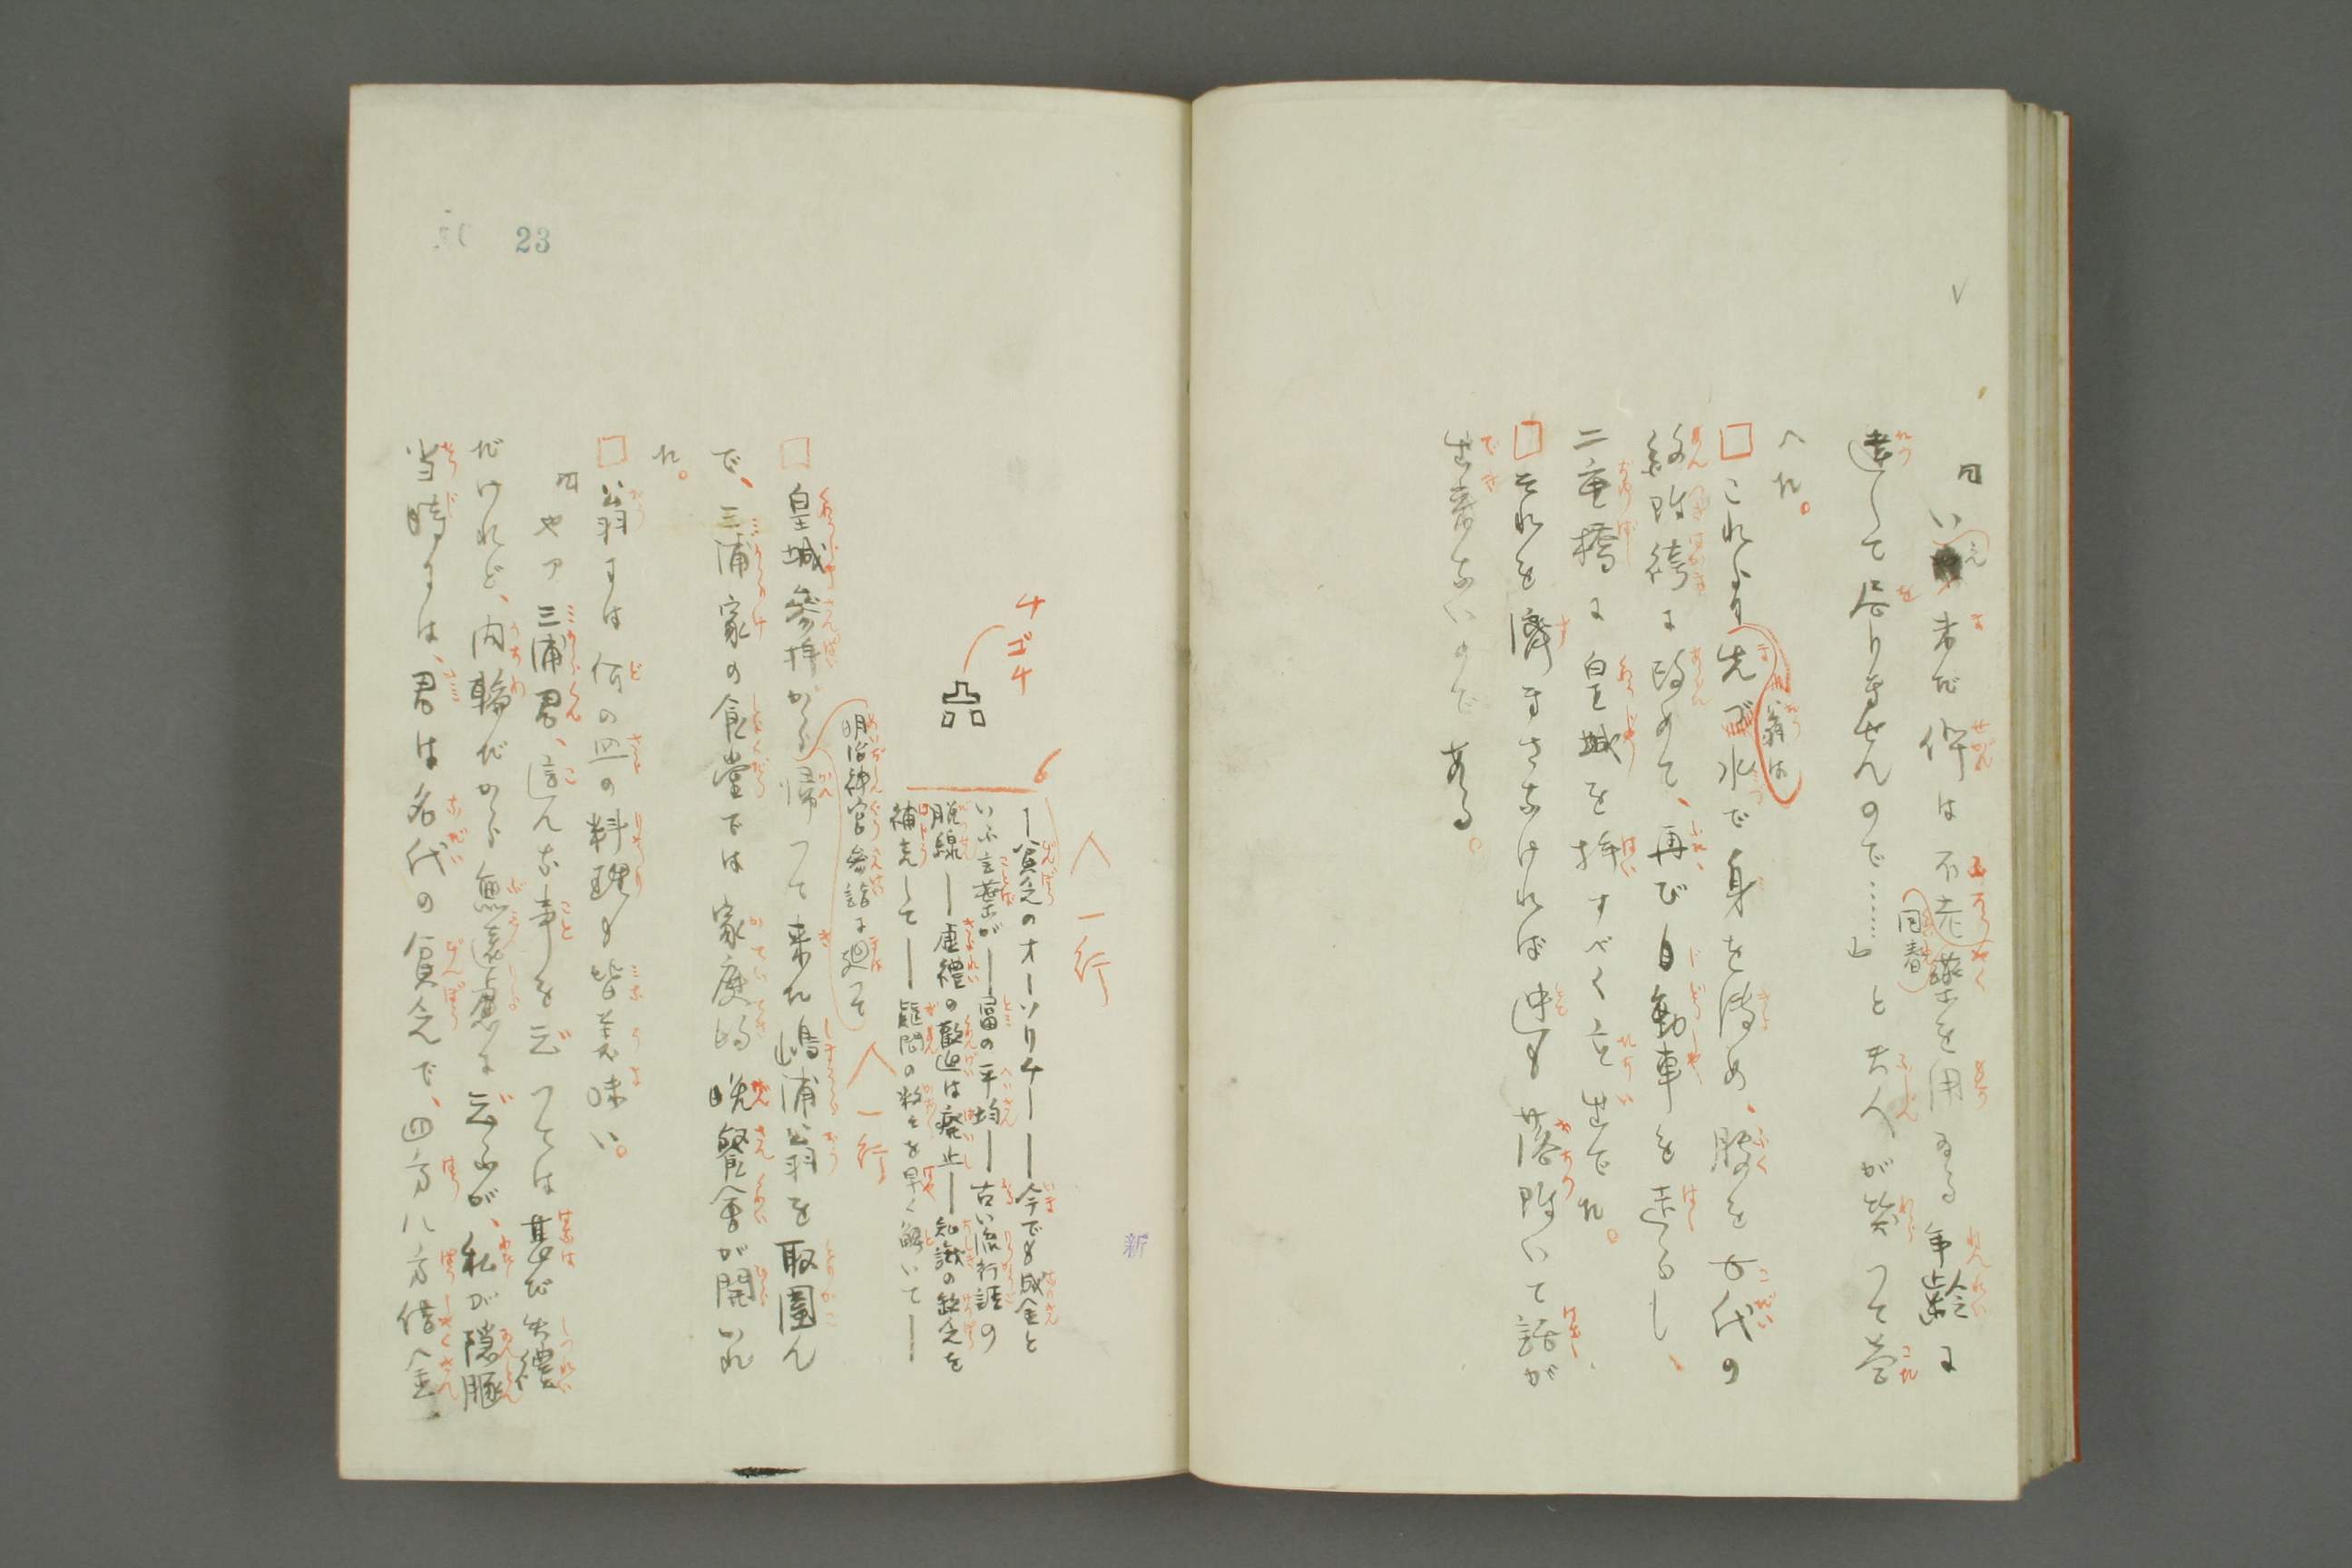 「いえ未だ倅は不老回春薬を用ゐる年齢に
達して居りませんので……」と夫人が笑つて答
へた。
□これより翁は先づ水で身を清め、服を古代の
紋附袴に改めて、再び自動車を走らし、
二重橋に皇城を拝すべく立出でた。
□それを済まさなければ迚も落附いて話が
出来ないのである。
23
新
人一行
6
―貧乏のオーソリチー――今でも成金と
いふ言葉が――富の平均――古い流行語の
脱線――虚禮の歓迎は廃止――知識の缺乏を
補充して――疑問の数々を早く解いて――
四ゴチ
人一行
□皇城参拝から明治神宮参詣に廻つて帰つて来た嶋浦翁を取圍ん
で、三浦家の食堂では家庭的晩餐會が開いれ
た。
□翁には何の皿の料理も皆美味い。
「やア三浦君、這んな事を云つては甚だ失禮
だけれど、内輪だから無遠慮に云ふが、私が隠豚
当時には、君は名代の貧乏で、四方八方借金